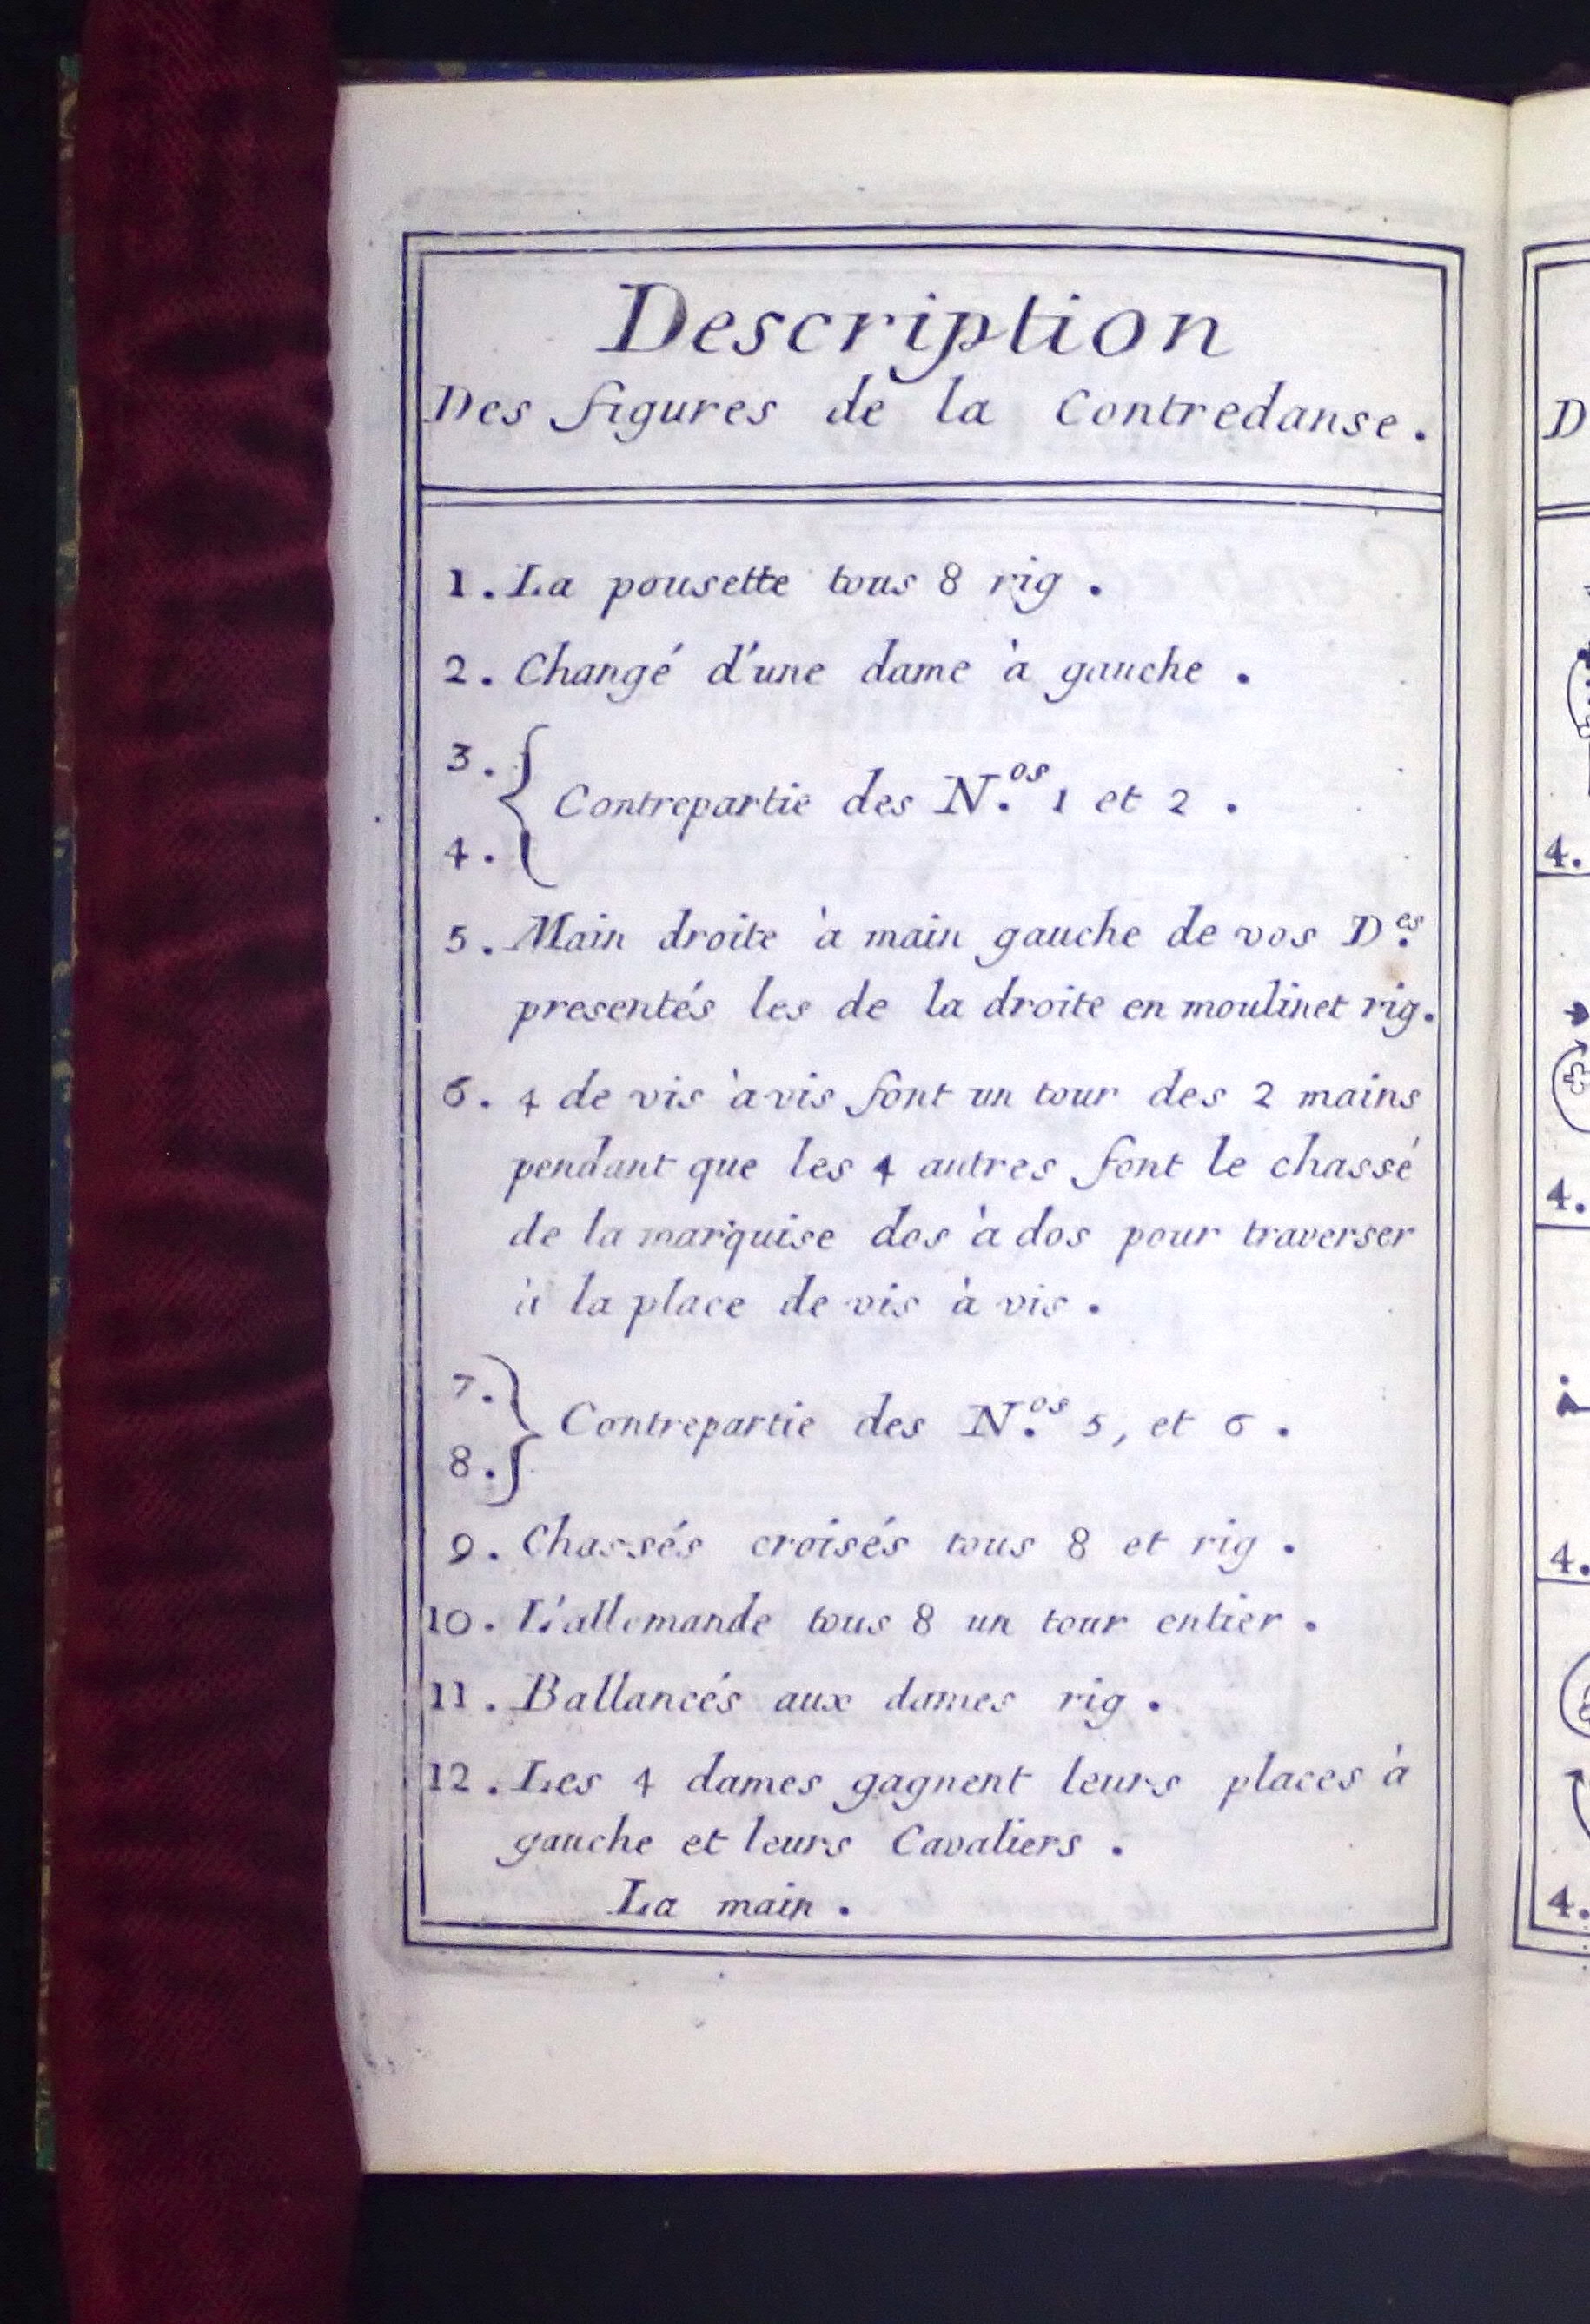 Description
Des figures de la Contredanse.
1. La pousette tous 8 rig.
2. Changé d'une dame à gauche.
3.
Contrepartie des N.os 1 et 2.
4.
5. Main droite à main gauche de vos D.es
presentés les de la droite en moulinet rig.
6. 4 de vis àvis font un tour des 2 mains
pendant que les 4 autres font le chassé
de la marquise dos à dos pour traverser
à la place de vis à vis.
7.
Contrepartie des N.os 5, et 6.
8.
9. Chassés croisés tous 8 et rig.
10. L'allemande tous 8 un tour entier.
11. Ballancés aux dames rig.
12. Les 4 dames gagnent leurs places à
gauche et leurs Cavaliers.
La main.
D
4.
4.
4.
4.